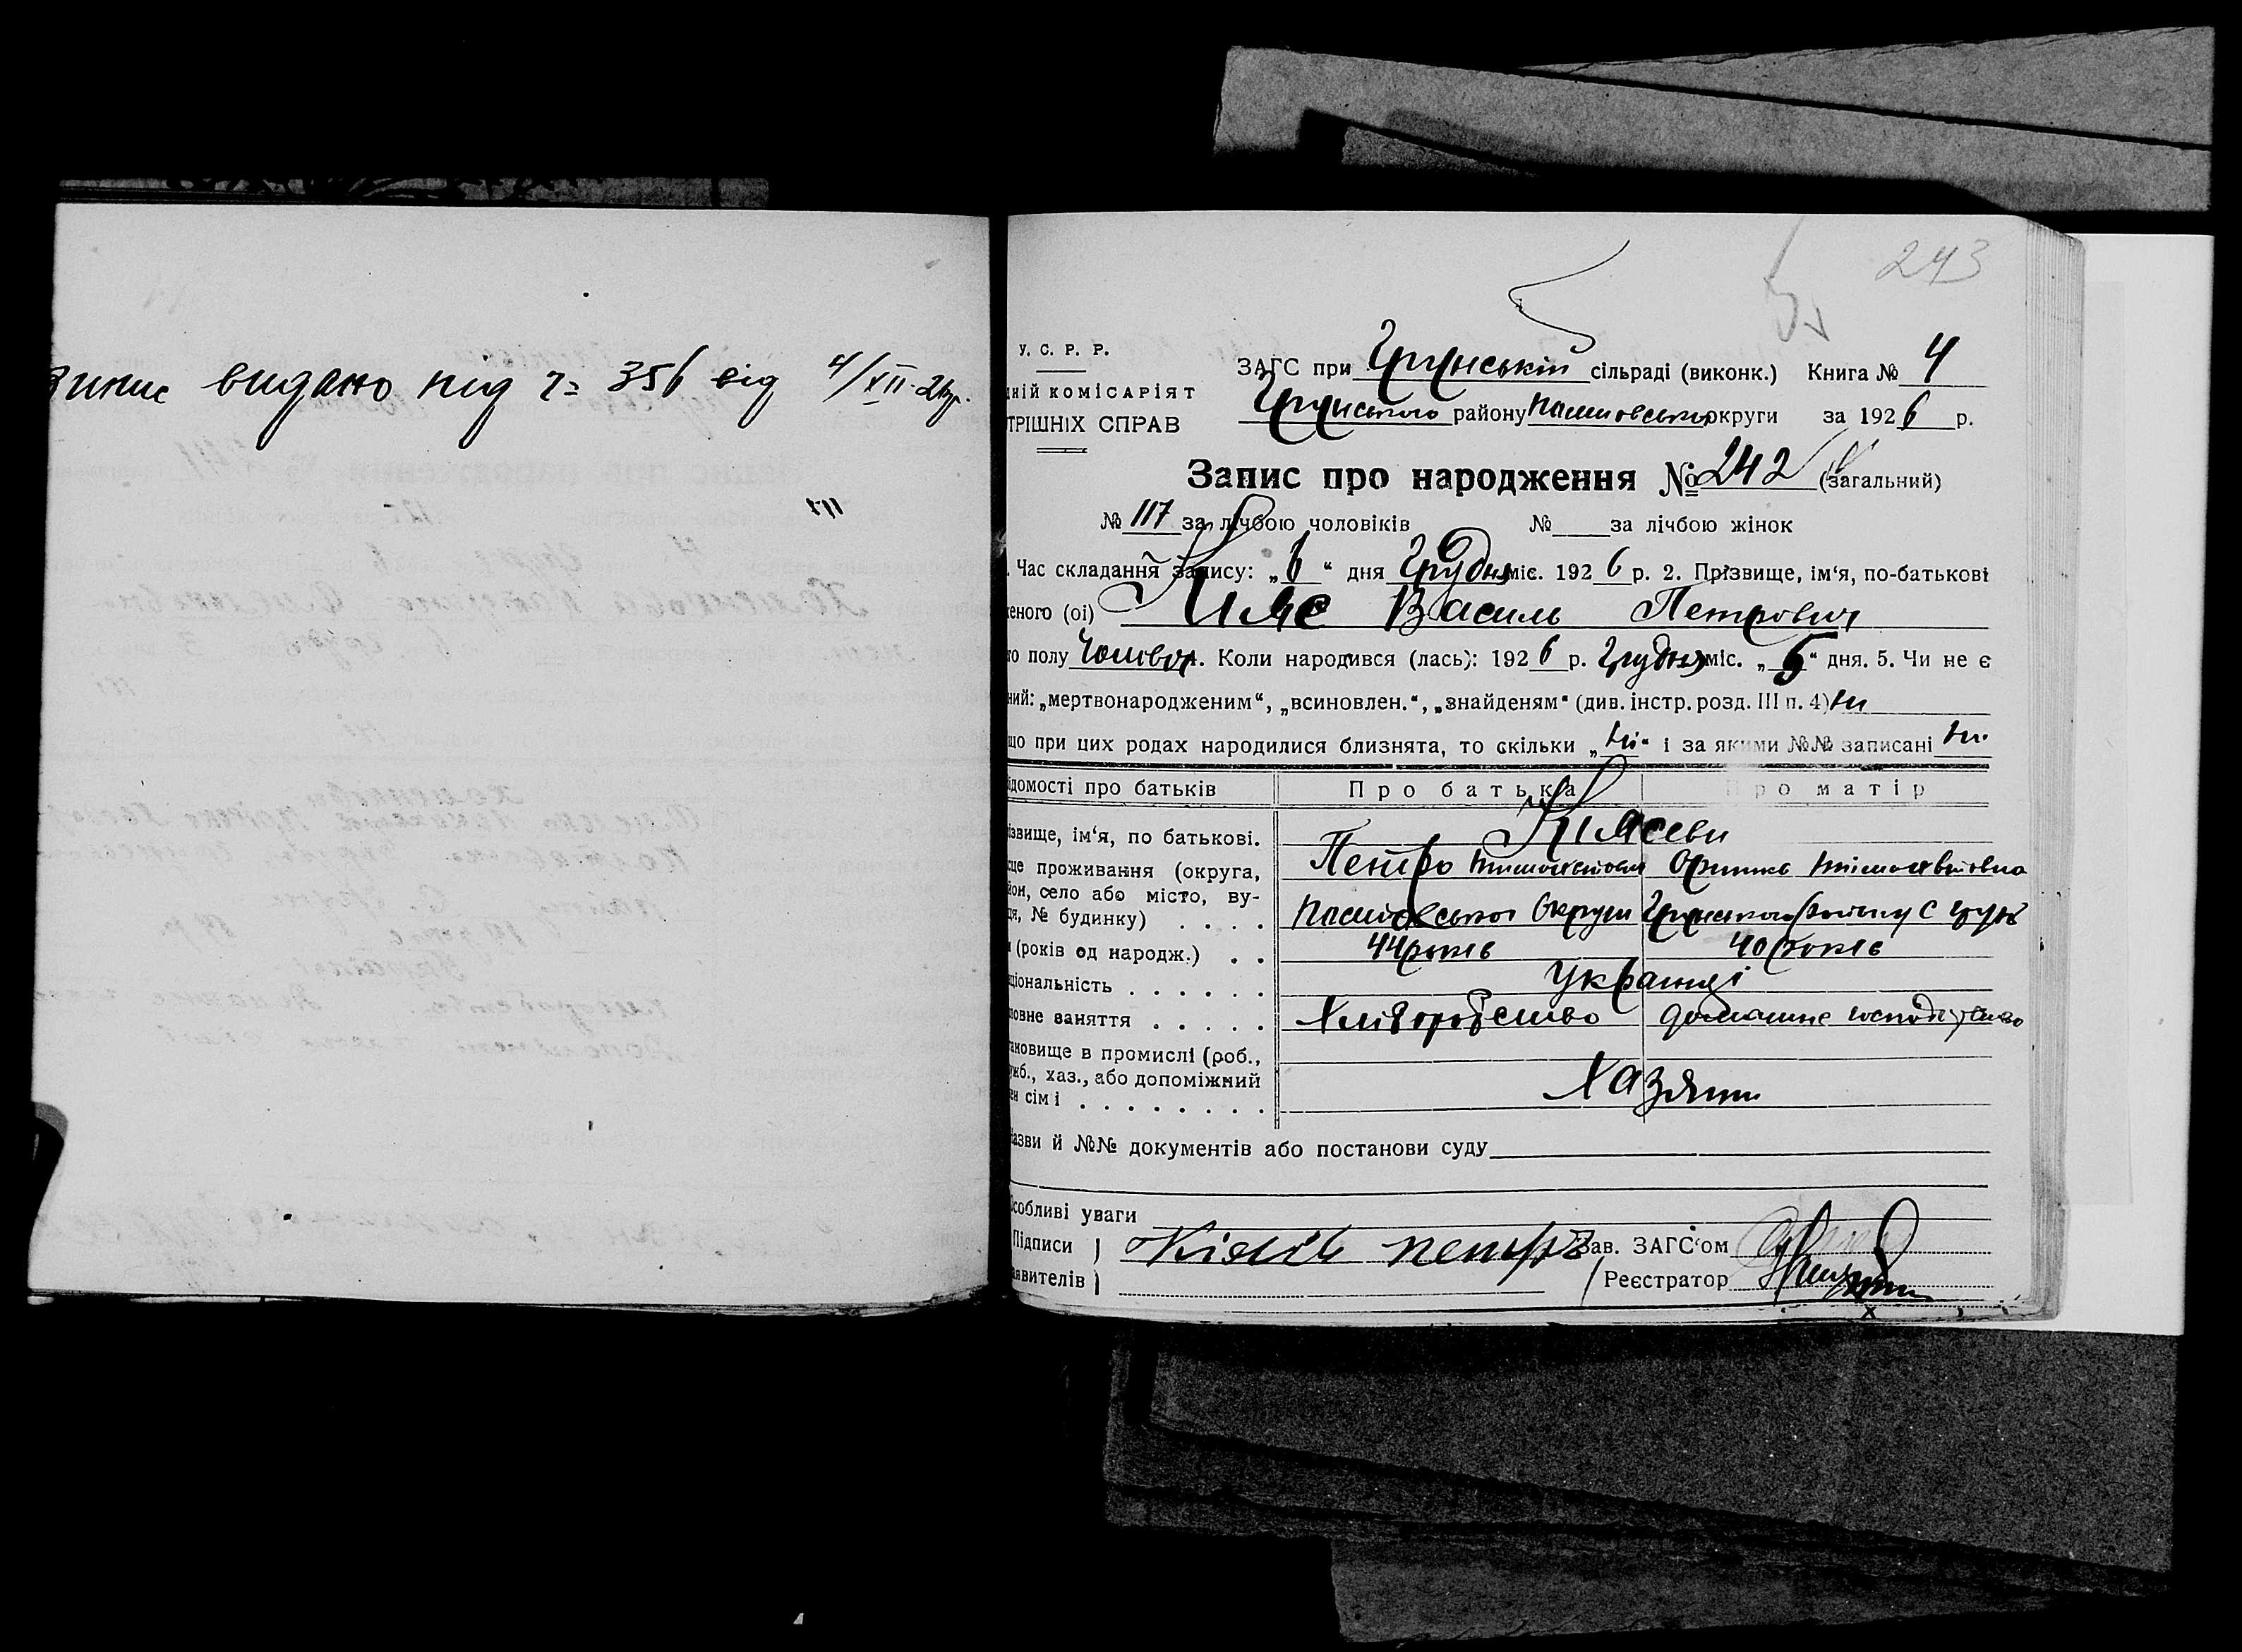 видано під ч= 356 від 4/XII-26р.
243
У. С. Р. Р.
ЗАГС при Грунській сільраді (виконк.) Книга № 4
дній КОМІСАРІЯТ
Грунського району Полтовської округи за 1926 р.
ТРІШНІХ СПРАВ
Запис про народження № 242 (загальний)
№ 117 за лічбою чоловіків № за лічбою жінок
. Час складання запису: „6“ дня Грудня міс. 1926 р. 2. Прізвище, ім‘я, по-батькові
еного (ої) Василь Петрович
го полу Чолівоч. Коли народився (лась): 1926 р. Грудня міс. „5“ дня. 5. Чи не є
ний: „мертвонародженим“, „всиновлен.“, „знайденям“ (див. інстр. розд. III п. 4) ні
що при цих родах народилися близнята, то скільки „ні“ і за якими №№ записані ні
ідомості про батьків Про батька Про матір
ізвище, ім‘я, по батькові.
Петро
це проживання (округа,
йон, село або місто, ву-
ця, № будинку) . . . . Полтовської Округи Грунського Району с Грунь
(років од народж.) . . 44 років 40 років
ціональність . . . . . . Українці
ловне заняття . . . . . Хліборобство домашне господарство
тановище в промислі (роб.,
ужб., хаз., або допоміжний
ен сімі . . . . . . . . Хазяини
азви й №№ документів або постанови суду
собливі уваги
Підписи ) Петро Зав. ЗАГС‘ом
аявителів ) Реєстратор